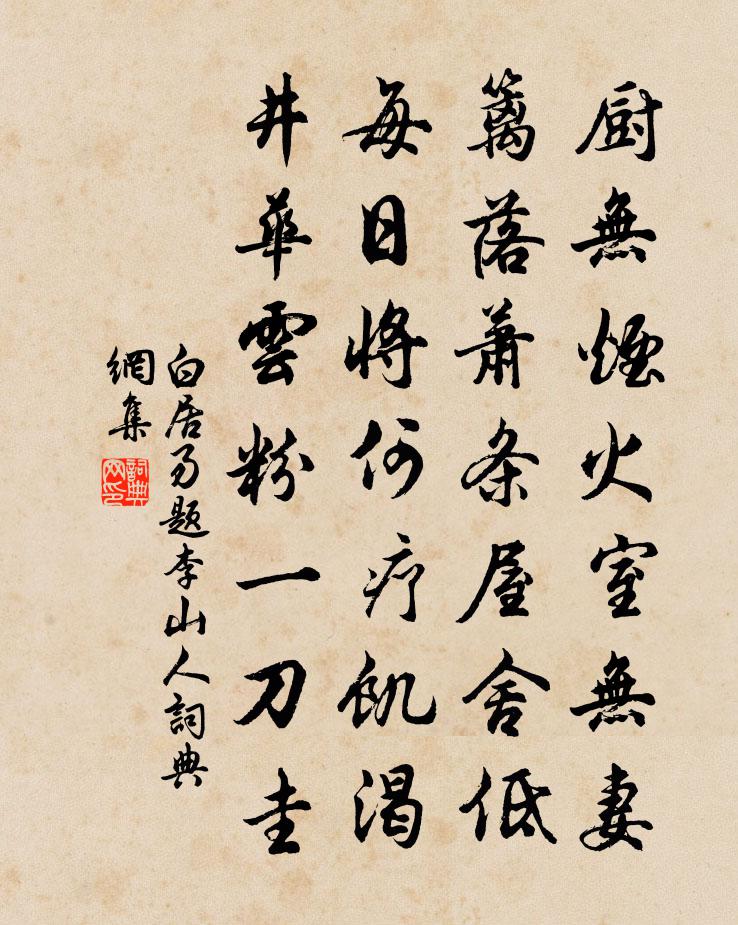 厨無煙火室無妻
籬落蕭条屋舍低
每日將何疗飢渴
井華雲粉一刀圭
白居易題李山人詞典
網集
詞典
网印